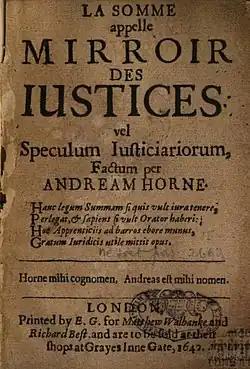 LA SOMME
appelle
MIRROIR
DES
IUSTICES
vel
Speculum Iusticiariorum,
Factum per
ANDREAM HORNE.
Hanc legum Summam si quis vult iura tenere,
Perlegat, & Sapiens si vult Orator haberi:
Hoc Apprenticiis ad barros ebore munus,
Gratum Iuridicis utile mittit opus.
Horne mihi cognomen, Andreas est mihi nomen.
LONDON,
Printed by E. G. for Matthew Walbanke and
Richard Best, and are to be sold at their
shops at Grayes Inne Gate, 1642.